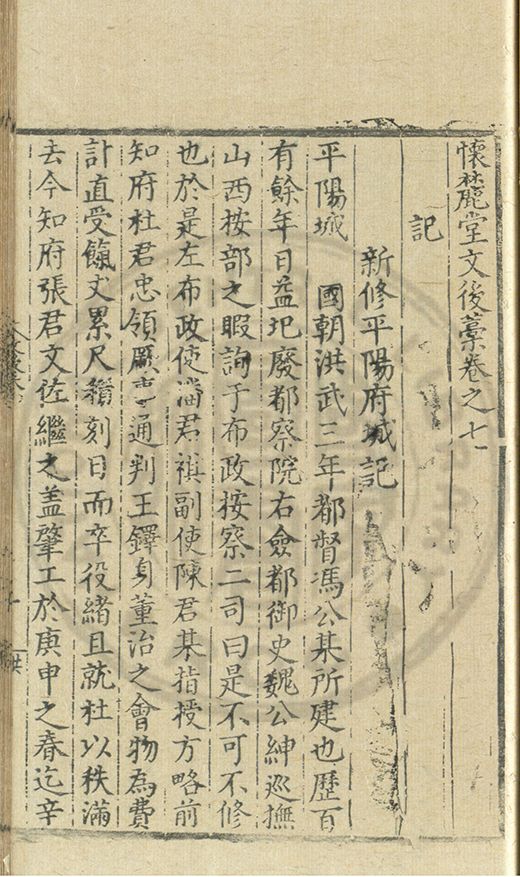 懷麓堂文後藁卷之七
記
新修平陽府城記
平陽城 國朝洪武三年都督馮公某所建也歷百
有餘年日益圮廢都察院右僉都御史魏公紳巡撫
山西按部之暇詢于布政按察二司曰是不可不修
也於是左布政使潘君禛副使陳君某指授方略前
知府杜君忠領厥事通判王鐸身董治之會物為費
計直受餼丈累尺積刻日而卒役緒且就杜以秩滿
去今知府張君文佐繼之盖肇工於庚申之春迄辛